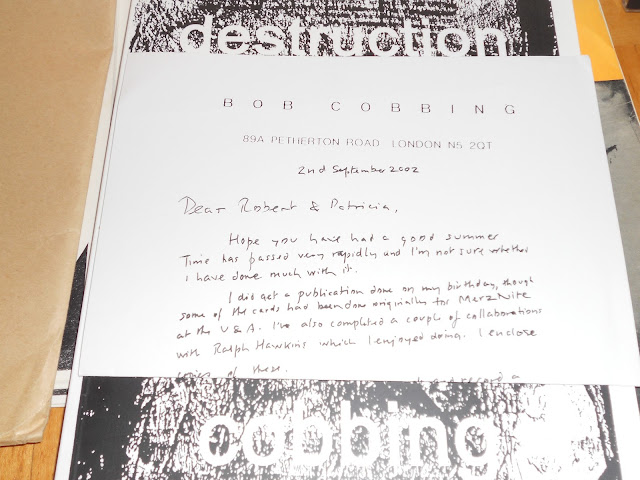 destruction
BOB COBBING
89A PETHERTON ROAD LONDON N5 2QT
2nd September 2002
Dear Robert & Patricia,
Hope you have had a good summer
Time has passed very rapidly and I'm not sure whether
I have done much with it.
I did get a publication done on my birthday, though
some of the cards had been done originally for MerzNite
at the V&A. I've also completed a couple of collaborations
with Ralph Hawkins which I enjoyed doing. I enclose
copies of these.
cobbing